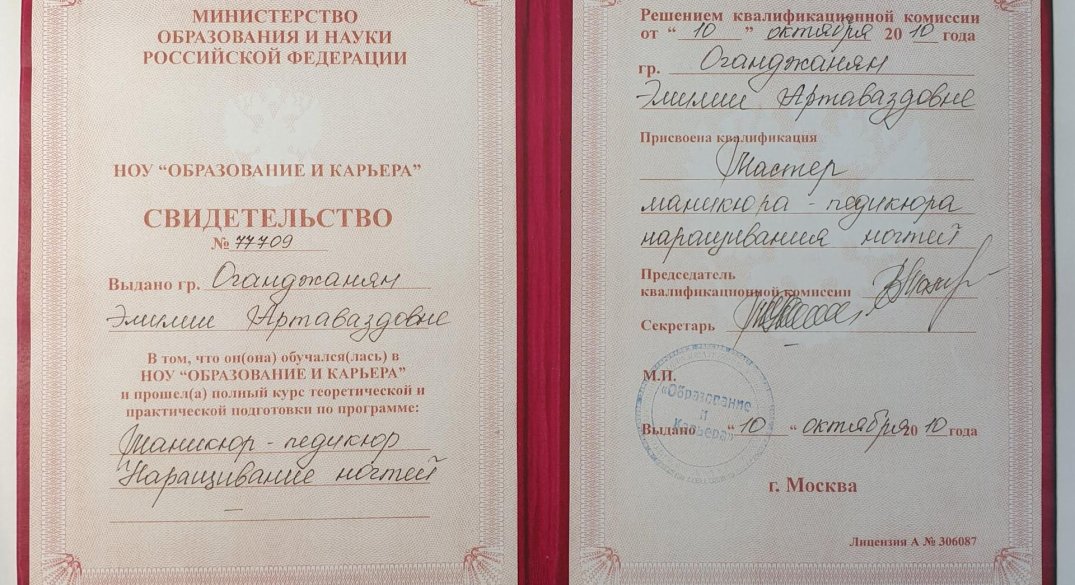 МИНИСТЕРСТВО
ОБРАЗОВАНИЯ И НАУКИ
РОССИЙСКОЙ ФЕДЕРАЦИИ
НОУ “ОБРАЗОВАНИЕ И КАРЬЕРА”
СВИДЕТЕЛЬСТВО
№ 77709
Выдано гр. Оганджанян
Эмилии Артаваздовне
В том, что он(она) обучался(лась) в
НОУ “ОБРАЗОВАНИЕ И КАРЬЕРА”
и прошел(а) полный курс теоретической и
практической подготовки по программе:
Маникюр - педикюр
Наращивание ногтей
Решением квалификационной комиссии
от “ 10 ” октября 20 10 года
гр. Оганджанян
Эмилии Артаваздовне
Присвоена квалификация
Мастер
маникюра - педикюра
наращивания ногтей
Председатель
квалификационной комиссии
Секретарь
М.П.
«Образование
и
Карьера»
Выдано “ 10 “ октября 20 10 года
г. Москва
Лицензия А № 306087